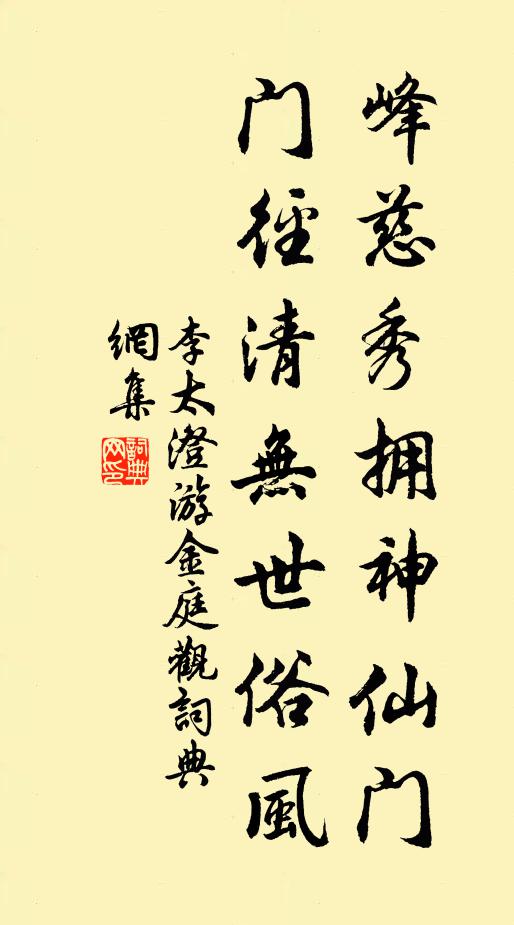 峰慈秀拥神仙门
门径清無世俗風
李太澄游金庭觀詞典
網集
詞典
网印